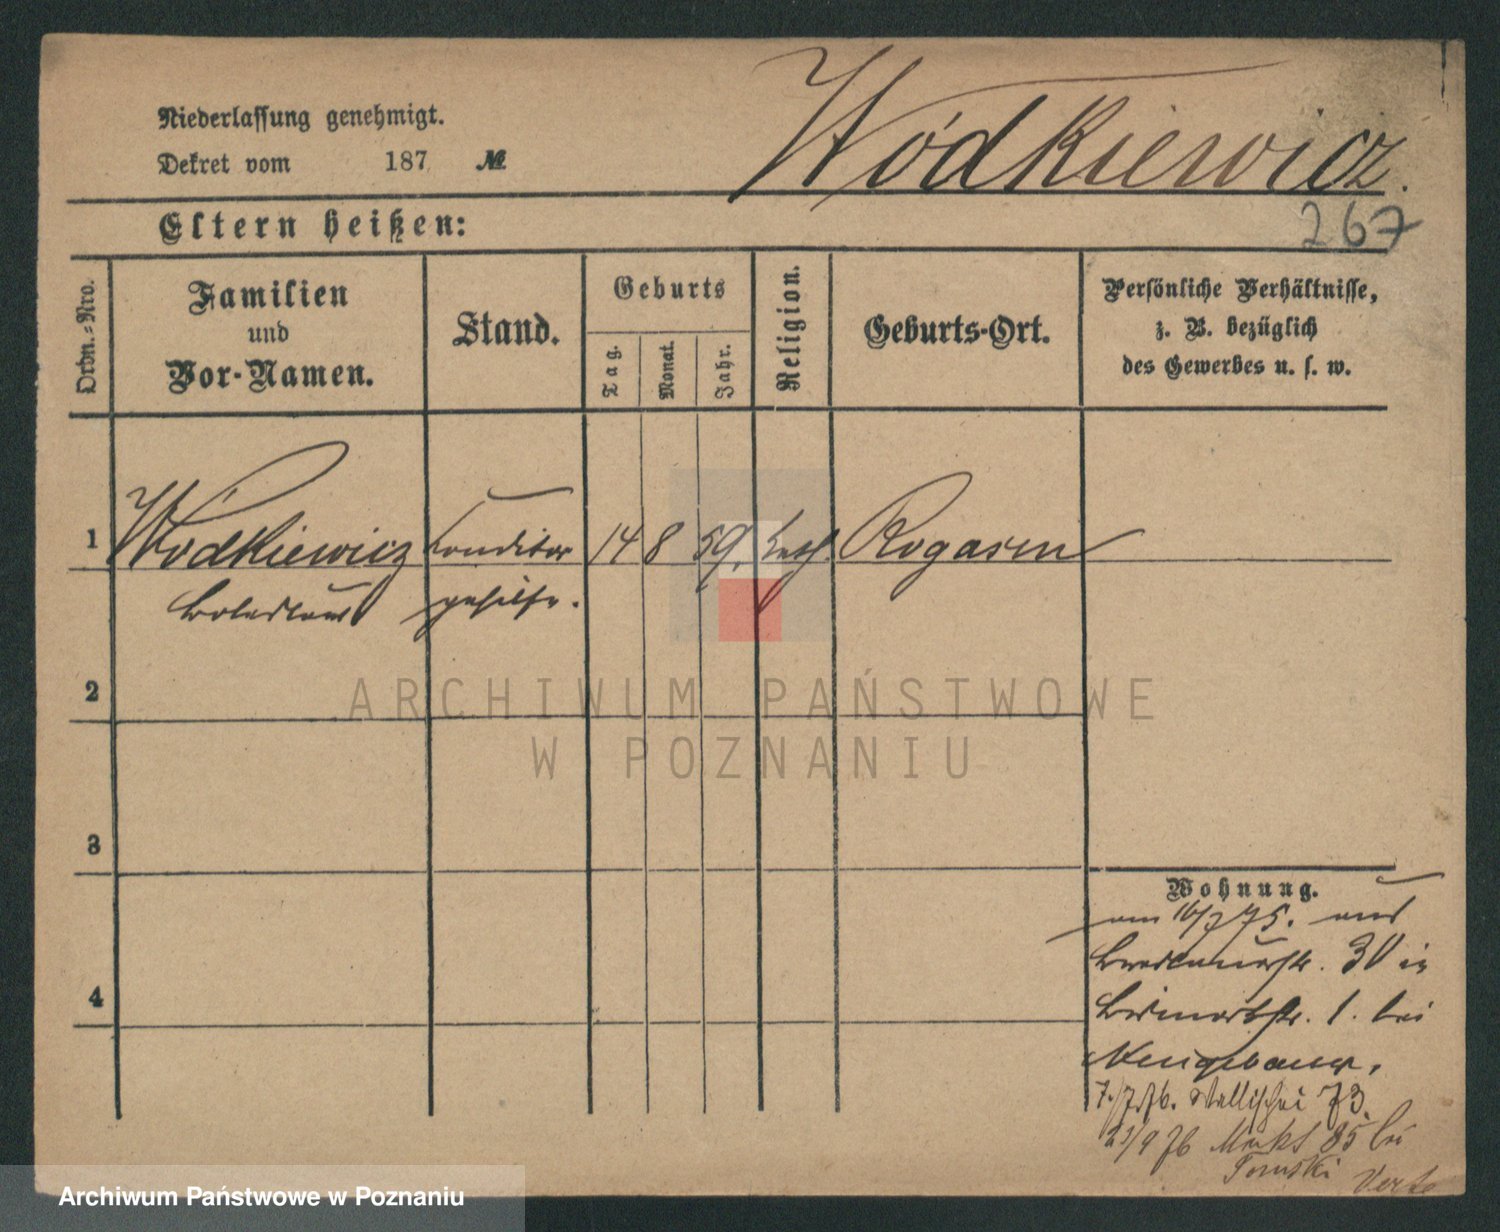 Wódkiewicz.
Niederlassung genehmigt.
Dekret vom 187 №
267
Eltern heißen:
Ordn.-Nro.
Familien
und
Vor-Namen.
Stand.
Geburts
Tag.
Monat.
Jahr.
Religion.
Geburts-Ort.
Persönliche Verhältnisse,
z. B. bezüglich
des Gewerbes u. s. w.
1 Wódkiewicz Conditor 14 8 59. kath. Rogasen
Boleslaus gehilfe.
2
3
4
Wohnung.
am 16/7 75. aus
30 in
Bismarkstr. 1. bei
Neugebauer.
7./7.76. Wallischei 73.
21/9 76 Markt 85 bei
Tomski Verte
ARCHIWUM PAŃSTWOWE
W POZNANIU
Archiwum Państwowe w Poznaniu